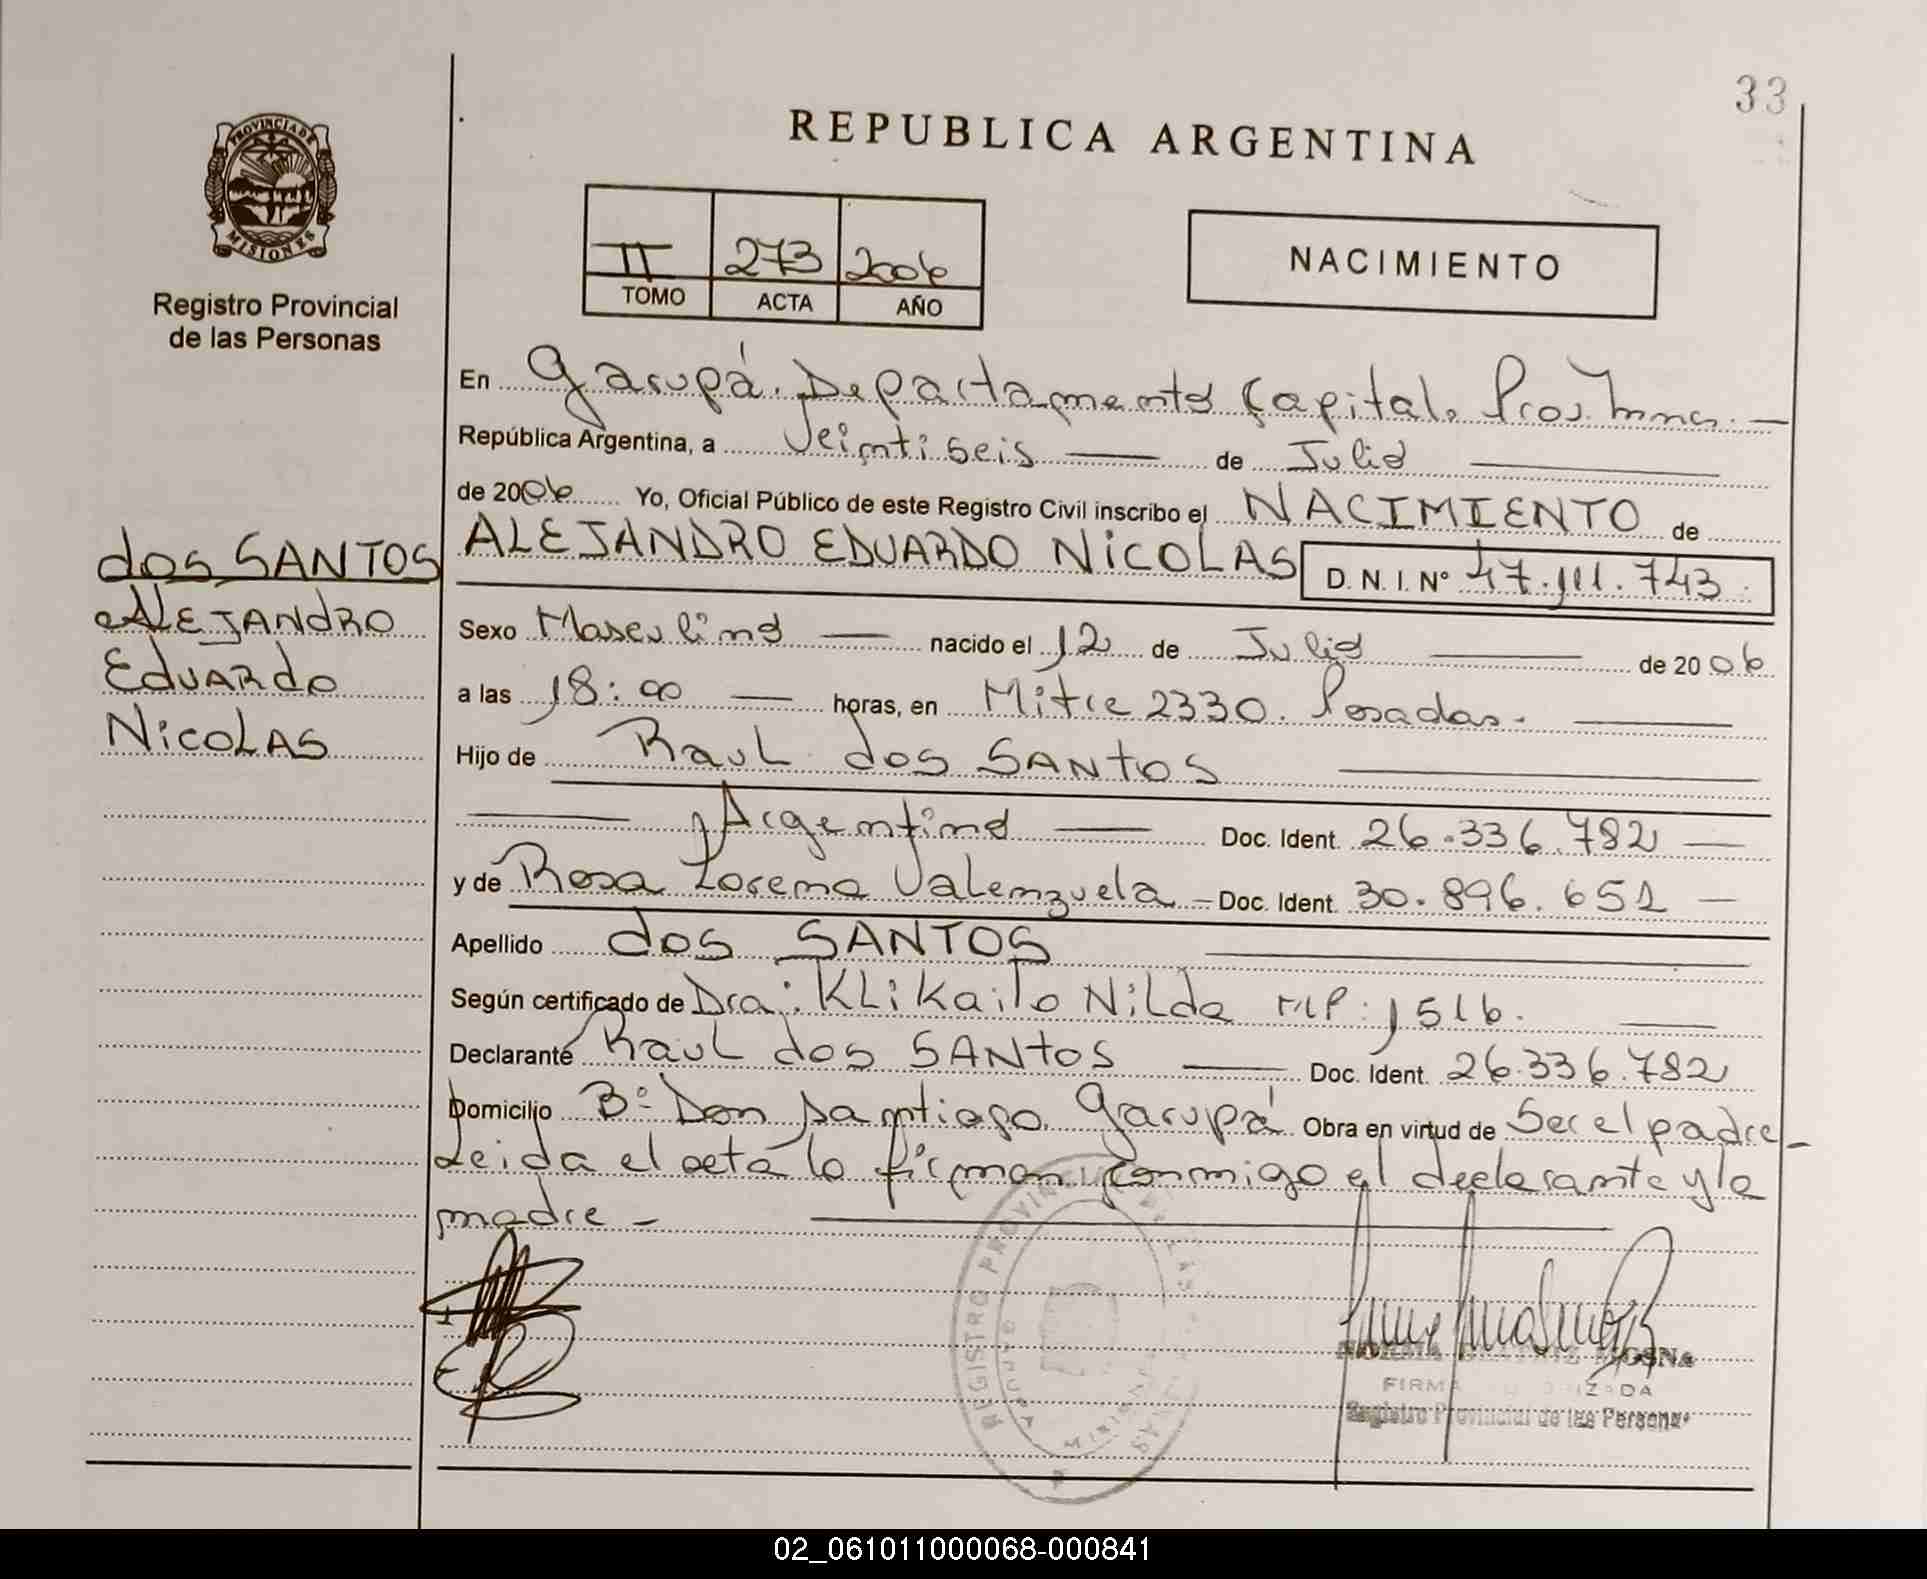 33
REPUBLICA ARGENTINA
PROVINCIA DE
MISIONES
Registro Provincial
de las Personas
II 273 2006
TOMO ACTA AÑO
NACIMIENTO
En Garupá. Departamento Capital. Prov. Mnes. —
República Argentina, a Veintiseis — de Julio —
de 2006 Yo, Oficial Público de este Registro Civil inscribo el NACIMIENTO de
ALEJANDRO EDUARDO NICOLAS D.N.I. Nº 47.111.743.
dos SANTOS
ALEJANDRO
EDUARDO
NICOLAS
Sexo Masculino — nacido el 12 de Julio — de 2006
a las 18:00 — horas, en Mitre 2330. Posadas. —
Hijo de Raul dos SANTOS —
— Argentino — Doc. Ident. 26.336.782 —
y de Rosa Lorena Valenzuela — Doc. Ident. 30.896.651 —
Apellido dos SANTOS —
Según certificado de Dra: Klikailo Nilda MP: 1516. —
Declarante Raul dos SANTOS — Doc. Ident. 26.336.782
Domicilio Bº Don Santiago. Garupá Obra en virtud de Ser el padre —
Leida el acta la firman conmigo el declarante y la
madre —
REGISTRO PROVINCIAL DE LAS
GARUPA MISIONES
FIRMA AUTORIZADA
Registro Provincial de las Personas
02_061011000068-000841